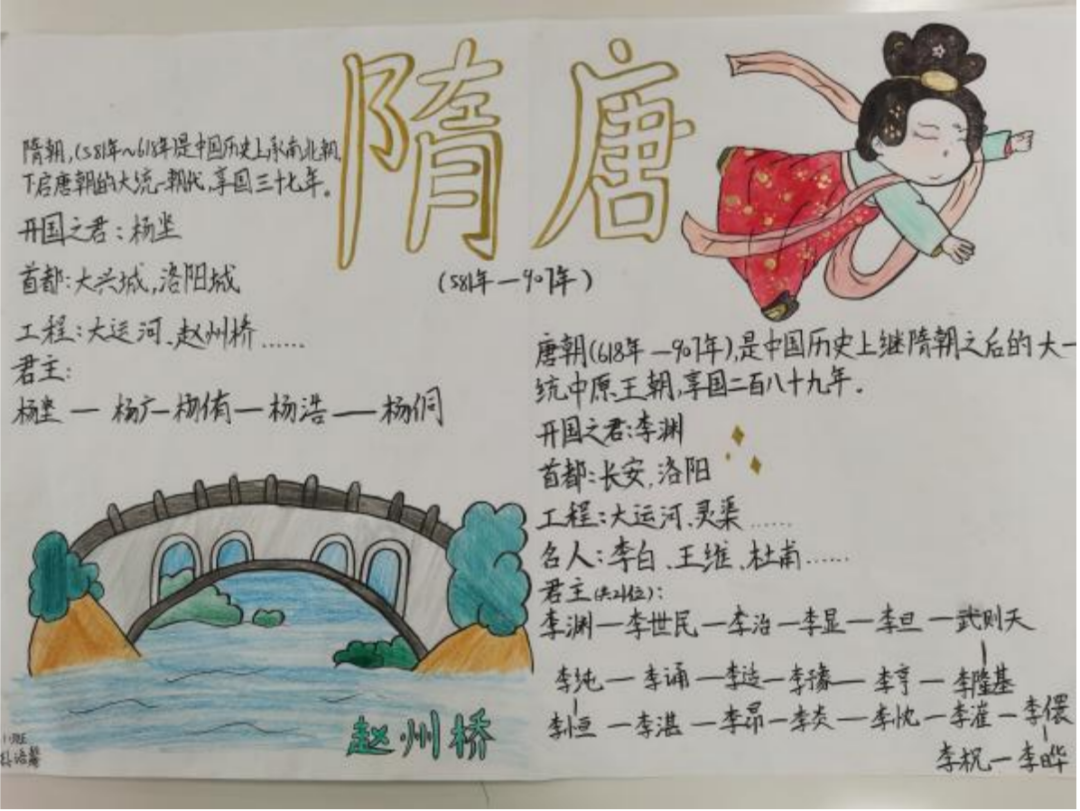 隋唐
(581年—907年)
隋朝,(581年~618年)是中国历史上承南北朝,
下启唐朝的大统一朝代,享国三十七年。
开国之君:杨坚
首都:大兴城,洛阳城
工程:大运河、赵州桥……
君主:
杨坚—杨广—杨侑—杨浩—杨侗
赵州桥
唐朝(618年—907年),是中国历史上继隋朝之后的大一
统中原王朝,享国二百八十九年。
开国之君:李渊
首都:长安,洛阳
工程:大运河、灵渠……
名人:李白、王维、杜甫……
君主(共21位):
李渊—李世民—李治—李显—李旦—武则天
李纯—李诵—李适—李豫—李亨—李隆基
李恒—李湛—李昂—李炎—李忱—李漼—李儇
李柷—李晔